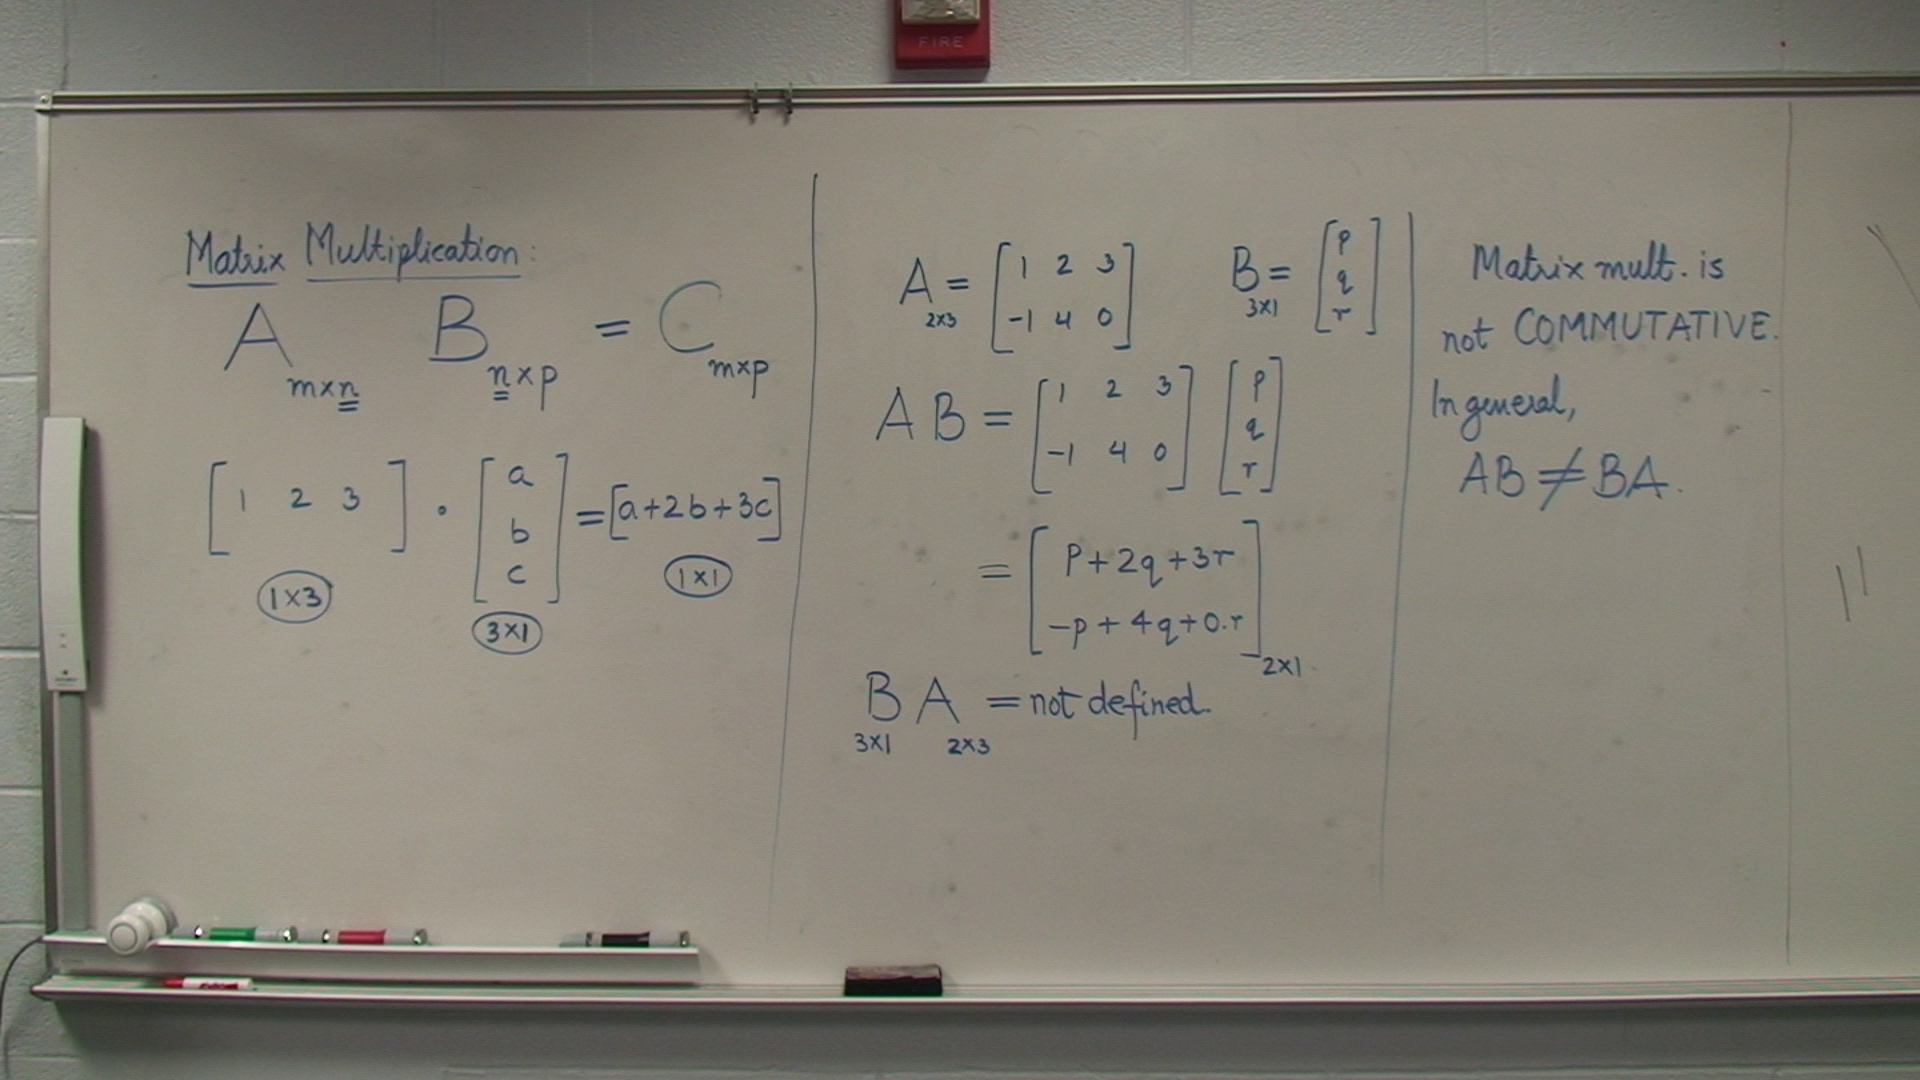 FIRE
Matrix Multiplication:
A m×n B n×p = C m×p
[ 1 2 3 ] · [ a b c ] = [a+2b+3c]
1×3 3×1 1×1
A 2×3 = [ 1 2 3
-1 4 0 ]
B 3×1 = [ p
q
r ]
AB = [ 1 2 3
-1 4 0 ] [ p
q
r ]
= [ p+2q+3r
-p+4q+0.r ] 2×1
B 3×1 A 2×3 = not defined.
Matrix mult. is
not COMMUTATIVE.
In general,
AB ≠ BA.